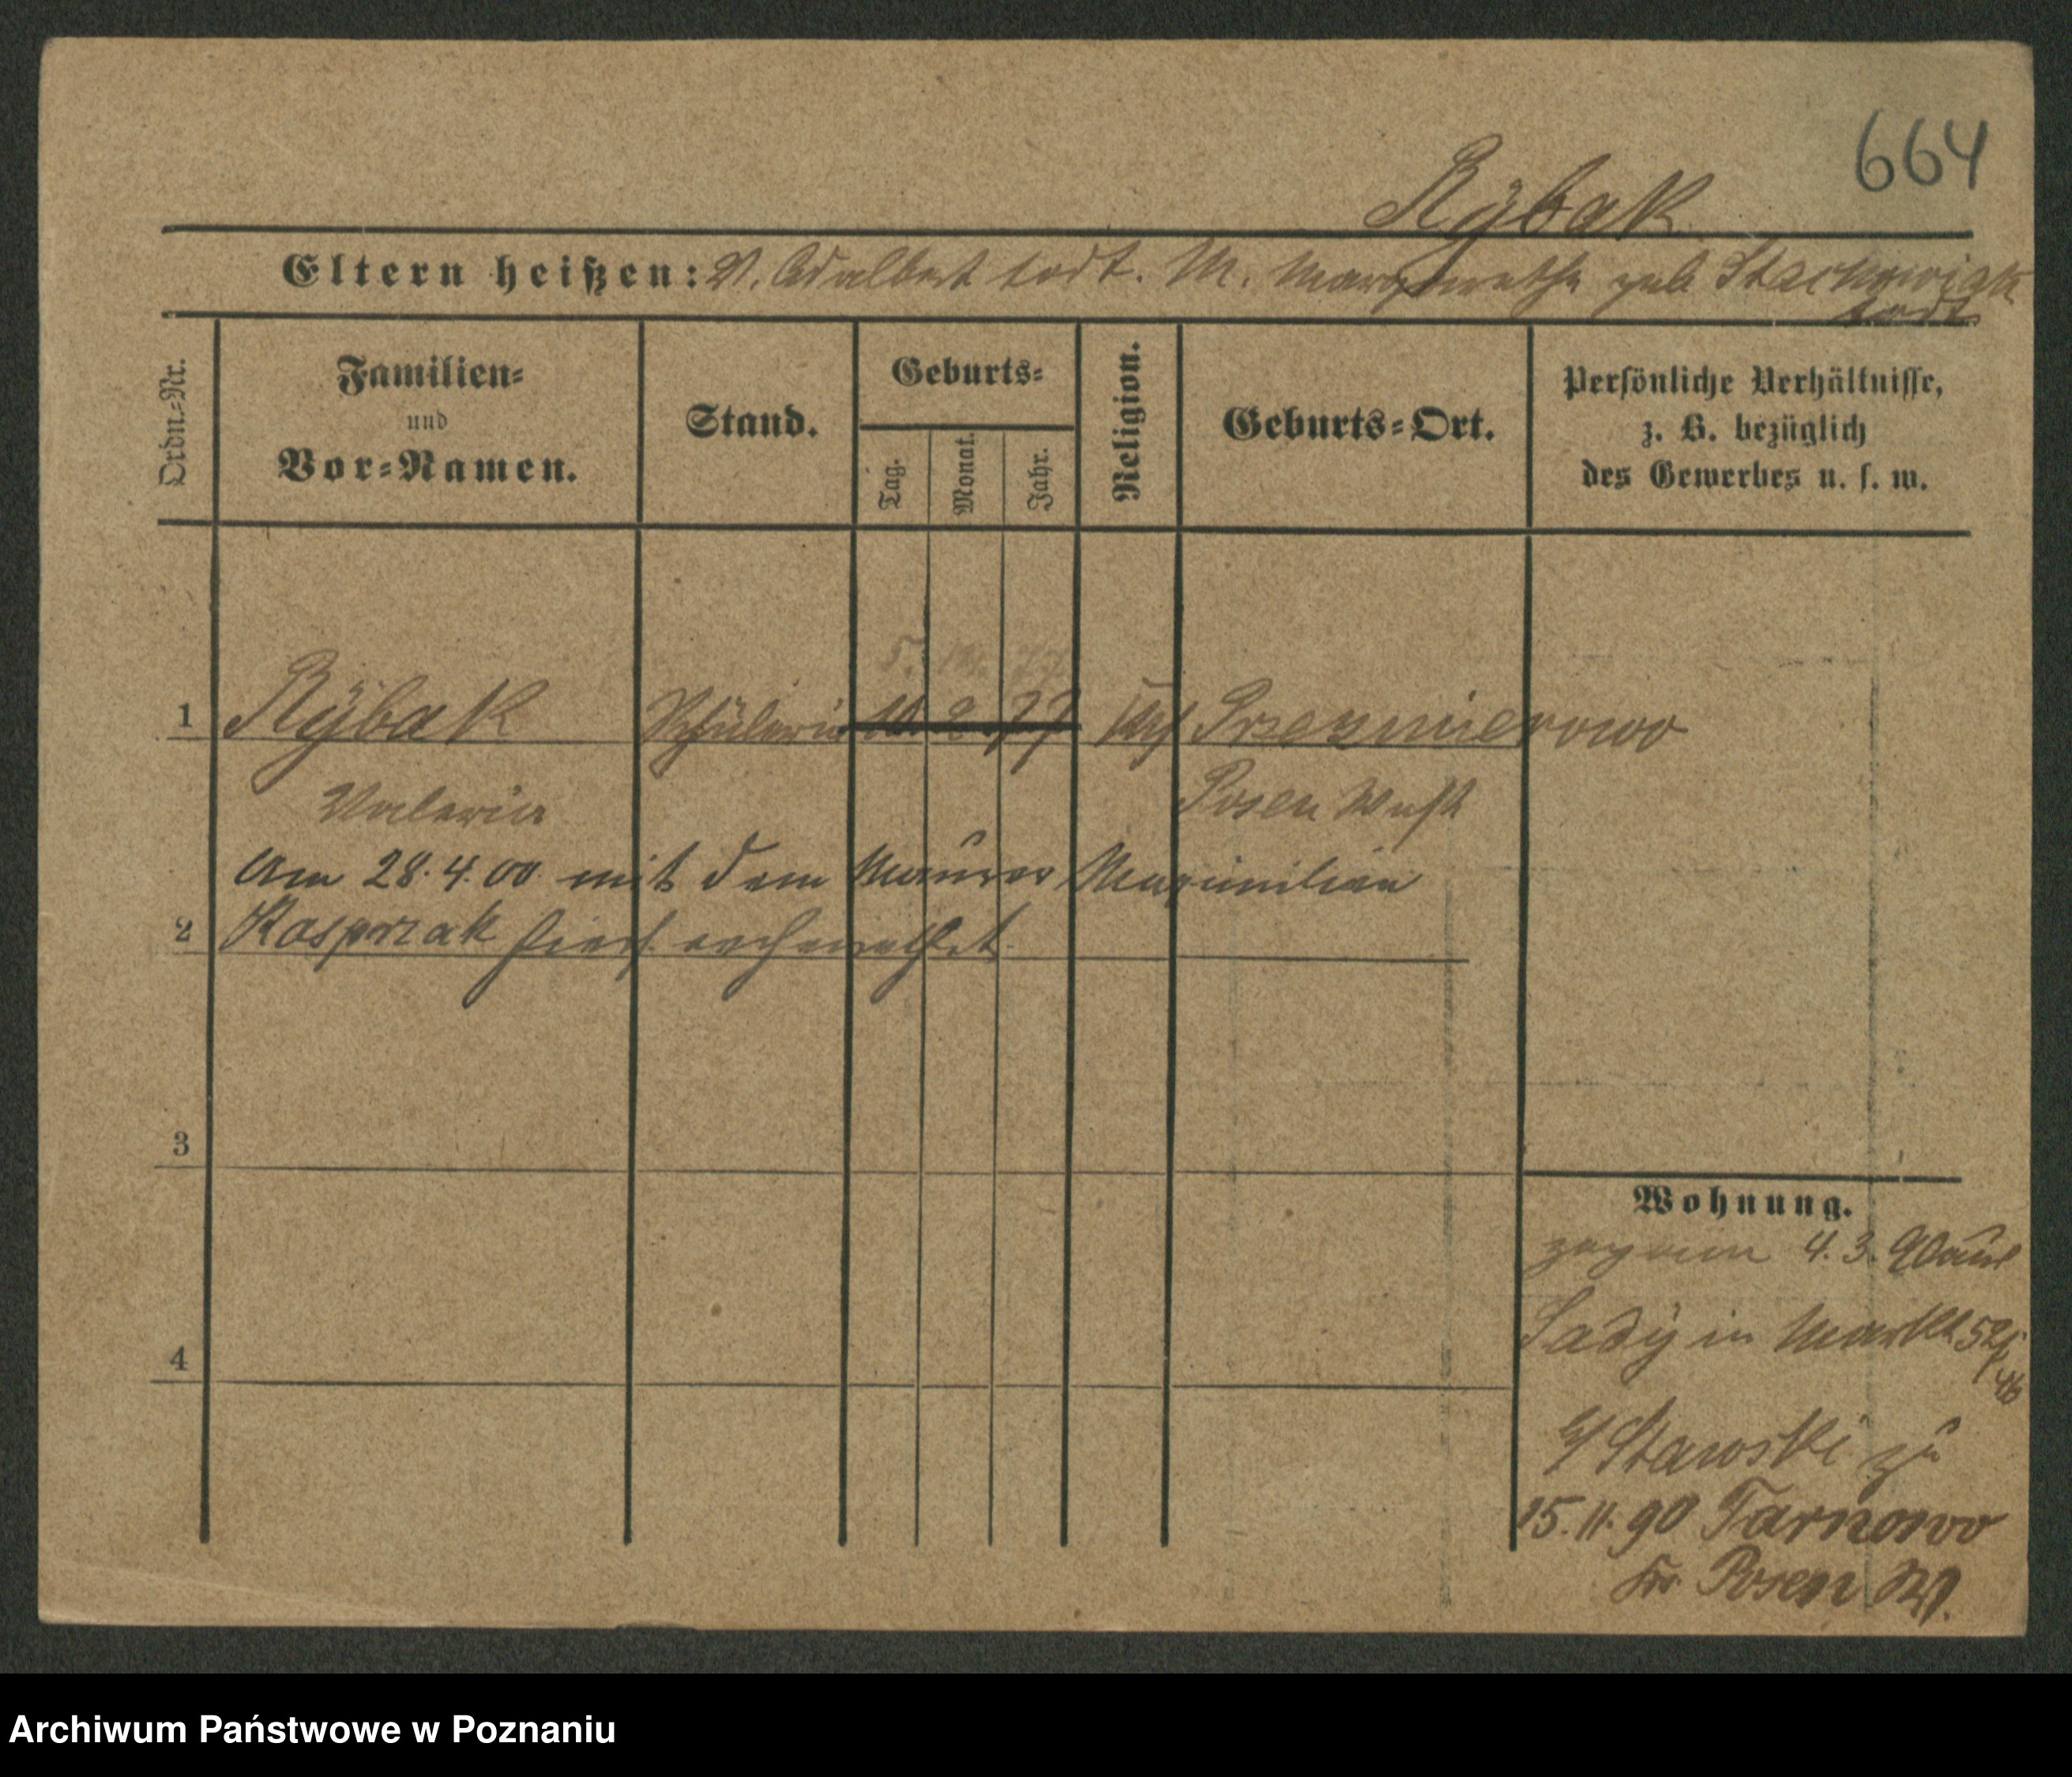 664
Rybak
Eltern heißen: V. Adalbert todt. M. Margarethe geb Stachowiak
todt
Ordn.-Nr.
Familien-
und
Vor-Namen.
Stand.
Geburts-
Tag.
Monat.
Jahr.
Religion.
Geburts-Ort.
Persönliche Verhältnisse,
z. B. bezüglich
des Gewerbes u. s. w.
5. 77
1 Rybak Schülerin 10 2 77 kath
Valeria Posen West
Am 28.4.00 mit dem Maurer Maximilian
2 Kasprzak hier verheirathet
3
4
Wohnung.
4. 3. 90
Sady in Markt 52
Stawski zu
15.11.90 Tarnowo
Kr. Posen W.
Archiwum Państwowe w Poznaniu